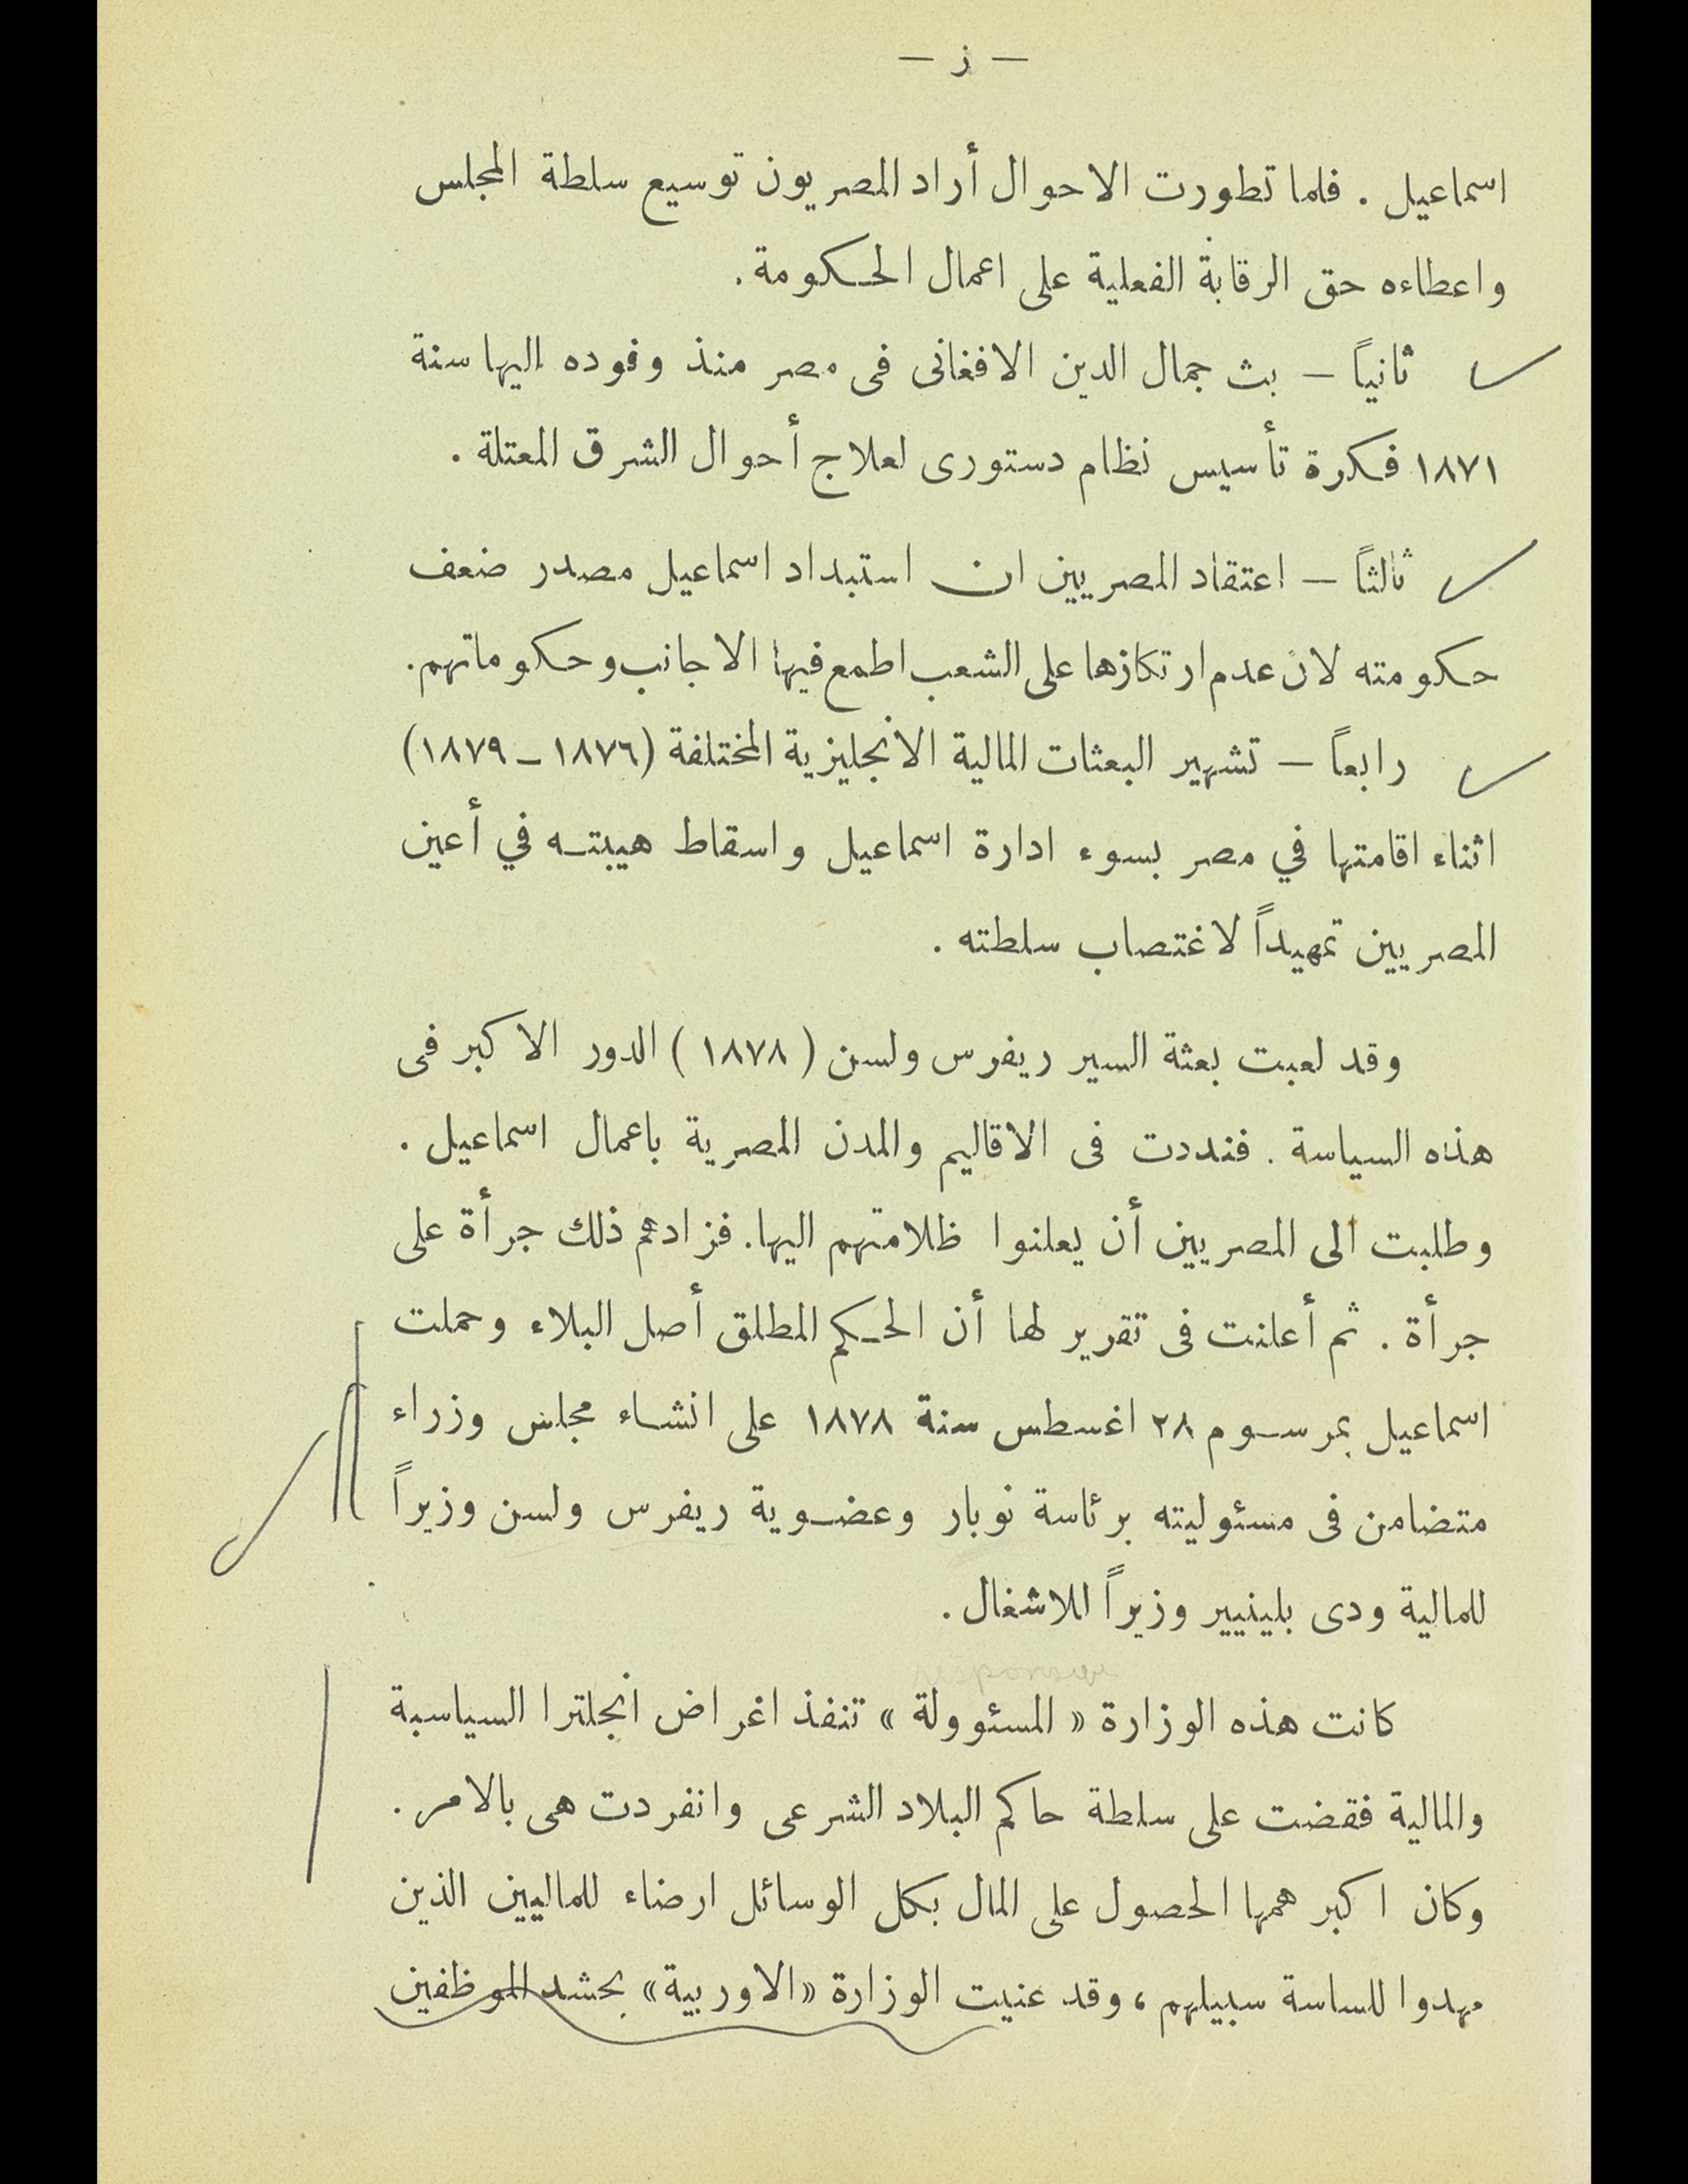 — ز —
اسماعيل . فلما تطورت الاحوال أراد المصريون توسيع سلطة المجلس
واعطاءه حق الرقابة الفعلية على اعمال الحكومة .
ثانياً — بث جمال الدين الافغانى فى مصر منذ وفوده اليها سنة
١٨٧١ فكرة تأسيس نظام دستورى لعلاج أحوال الشرق المعتلة .
ثالثاً — اعتقاد المصريين ان استبداد اسماعيل مصدر ضعف
حكومته لان عدم ارتكازها على الشعب اطمع فيها الاجانب وحكوماتهم .
رابعاً — تشهير البعثات المالية الانجليزية المختلفة (١٨٧٦ — ١٨٧٩)
اثناء اقامتها في مصر بسوء ادارة اسماعيل واسقاط هيبته في أعين
المصريين تمهيداً لاغتصاب سلطته .
وقد لعبت بعثة السير ريفرس ولسن ( ١٨٧٨ ) الدور الاكبر فى
هذه السياسة . فنددت فى الاقاليم والمدن المصرية باعمال اسماعيل .
وطلبت الى المصريين أن يعلنوا ظلامتهم اليها . فزادهم ذلك جرأة على
جرأة . ثم أعلنت فى تقرير لها أن الحكم المطلق أصل البلاء وحملت
اسماعيل بمرسوم ٢٨ اغسطس سنة ١٨٧٨ على انشاء مجلس وزراء
متضامن فى مسئوليته برئاسة نوبار وعضوية ريفرس ولسن وزيراً
للمالية ودى بلينيير وزيراً للاشغال .
كانت هذه الوزارة « المسئوولة » تنفذ اغراض انجلترا السياسية
والمالية فقضت على سلطة حاكم البلاد الشرعى وانفردت هى بالامر .
وكان اكبر همها الحصول على المال بكل الوسائل ارضاء للماليين الذين
مهدوا للساسة سبيلهم ، وقد عنيت الوزارة « الاوربية » بحشد الموظفين